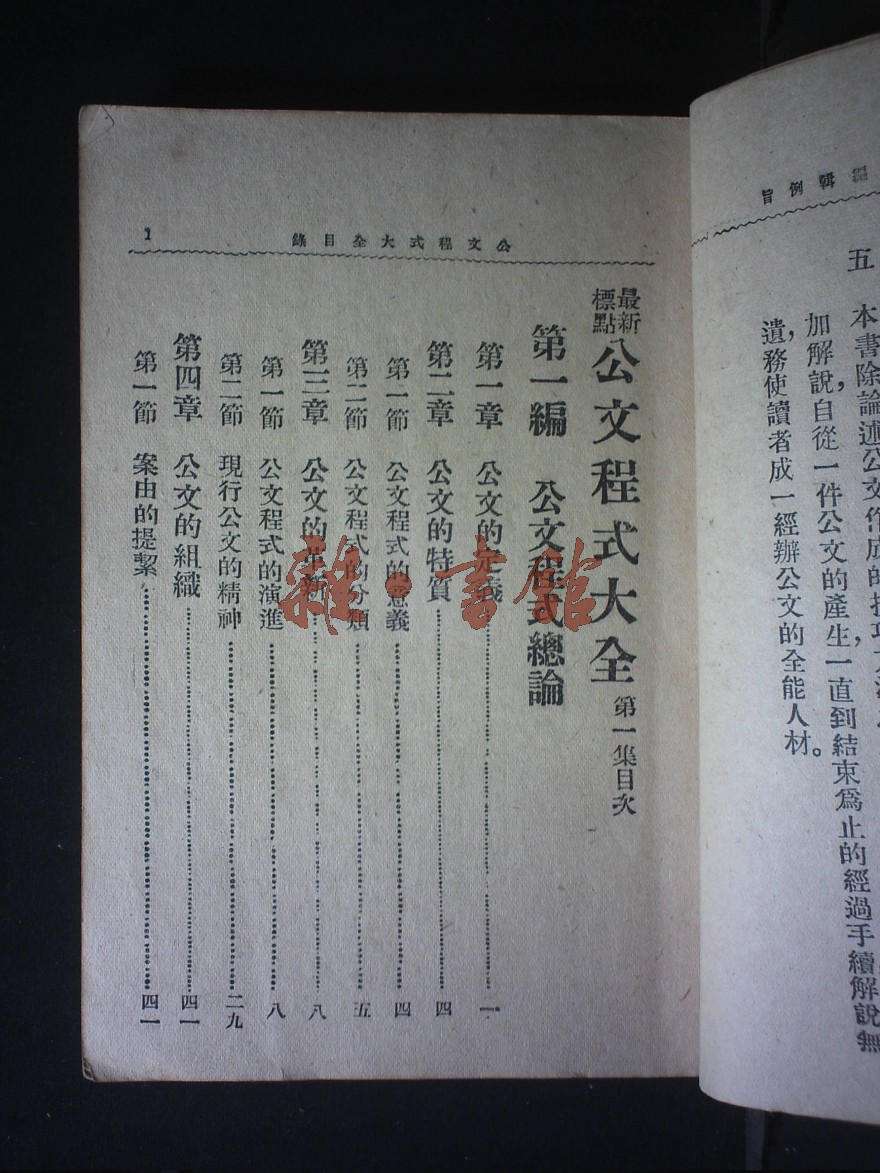 編輯例旨
五　本書除論述公文作成的技巧方法
加解說，自從一件公文的產生，一直到結束爲止的經過手續，解說無
遺，務使讀者成一經辦公文的全能人材。
公文程式大全目錄
1
最新標點 公文程式大全 第一集目次
第一編　公文程式總論
第一章　公文的定義…………一
第二章　公文的特質…………四
第一節　公文程式的意義…………四
第二節　公文程式的分類…………五
第三章　公文的革新…………八
第一節　公文程式的演進…………八
第二節　現行公文的精神…………二九
第四章　公文的組織…………四一
第一節　案由的提絜…………四一
雜·書館